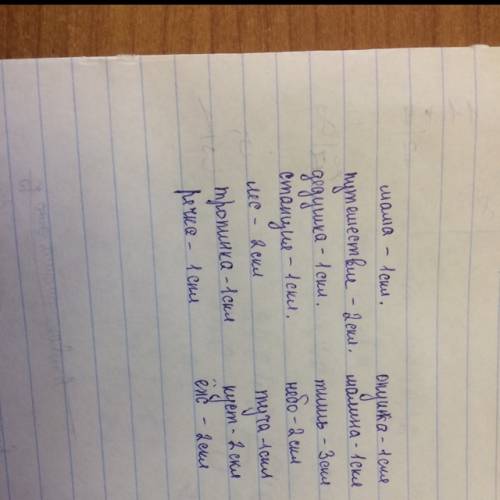 мама - 1скл. опушка - 1скл
путешествие - 2скл. малина - 1скл
дедушка - 1скл. тишь - 3скл
станция - 1скл. небо - 2скл
лес - 2скл туча - 1скл
тропинка - 1скл куст - 2скл
речка - 1скл ёж - 2скл